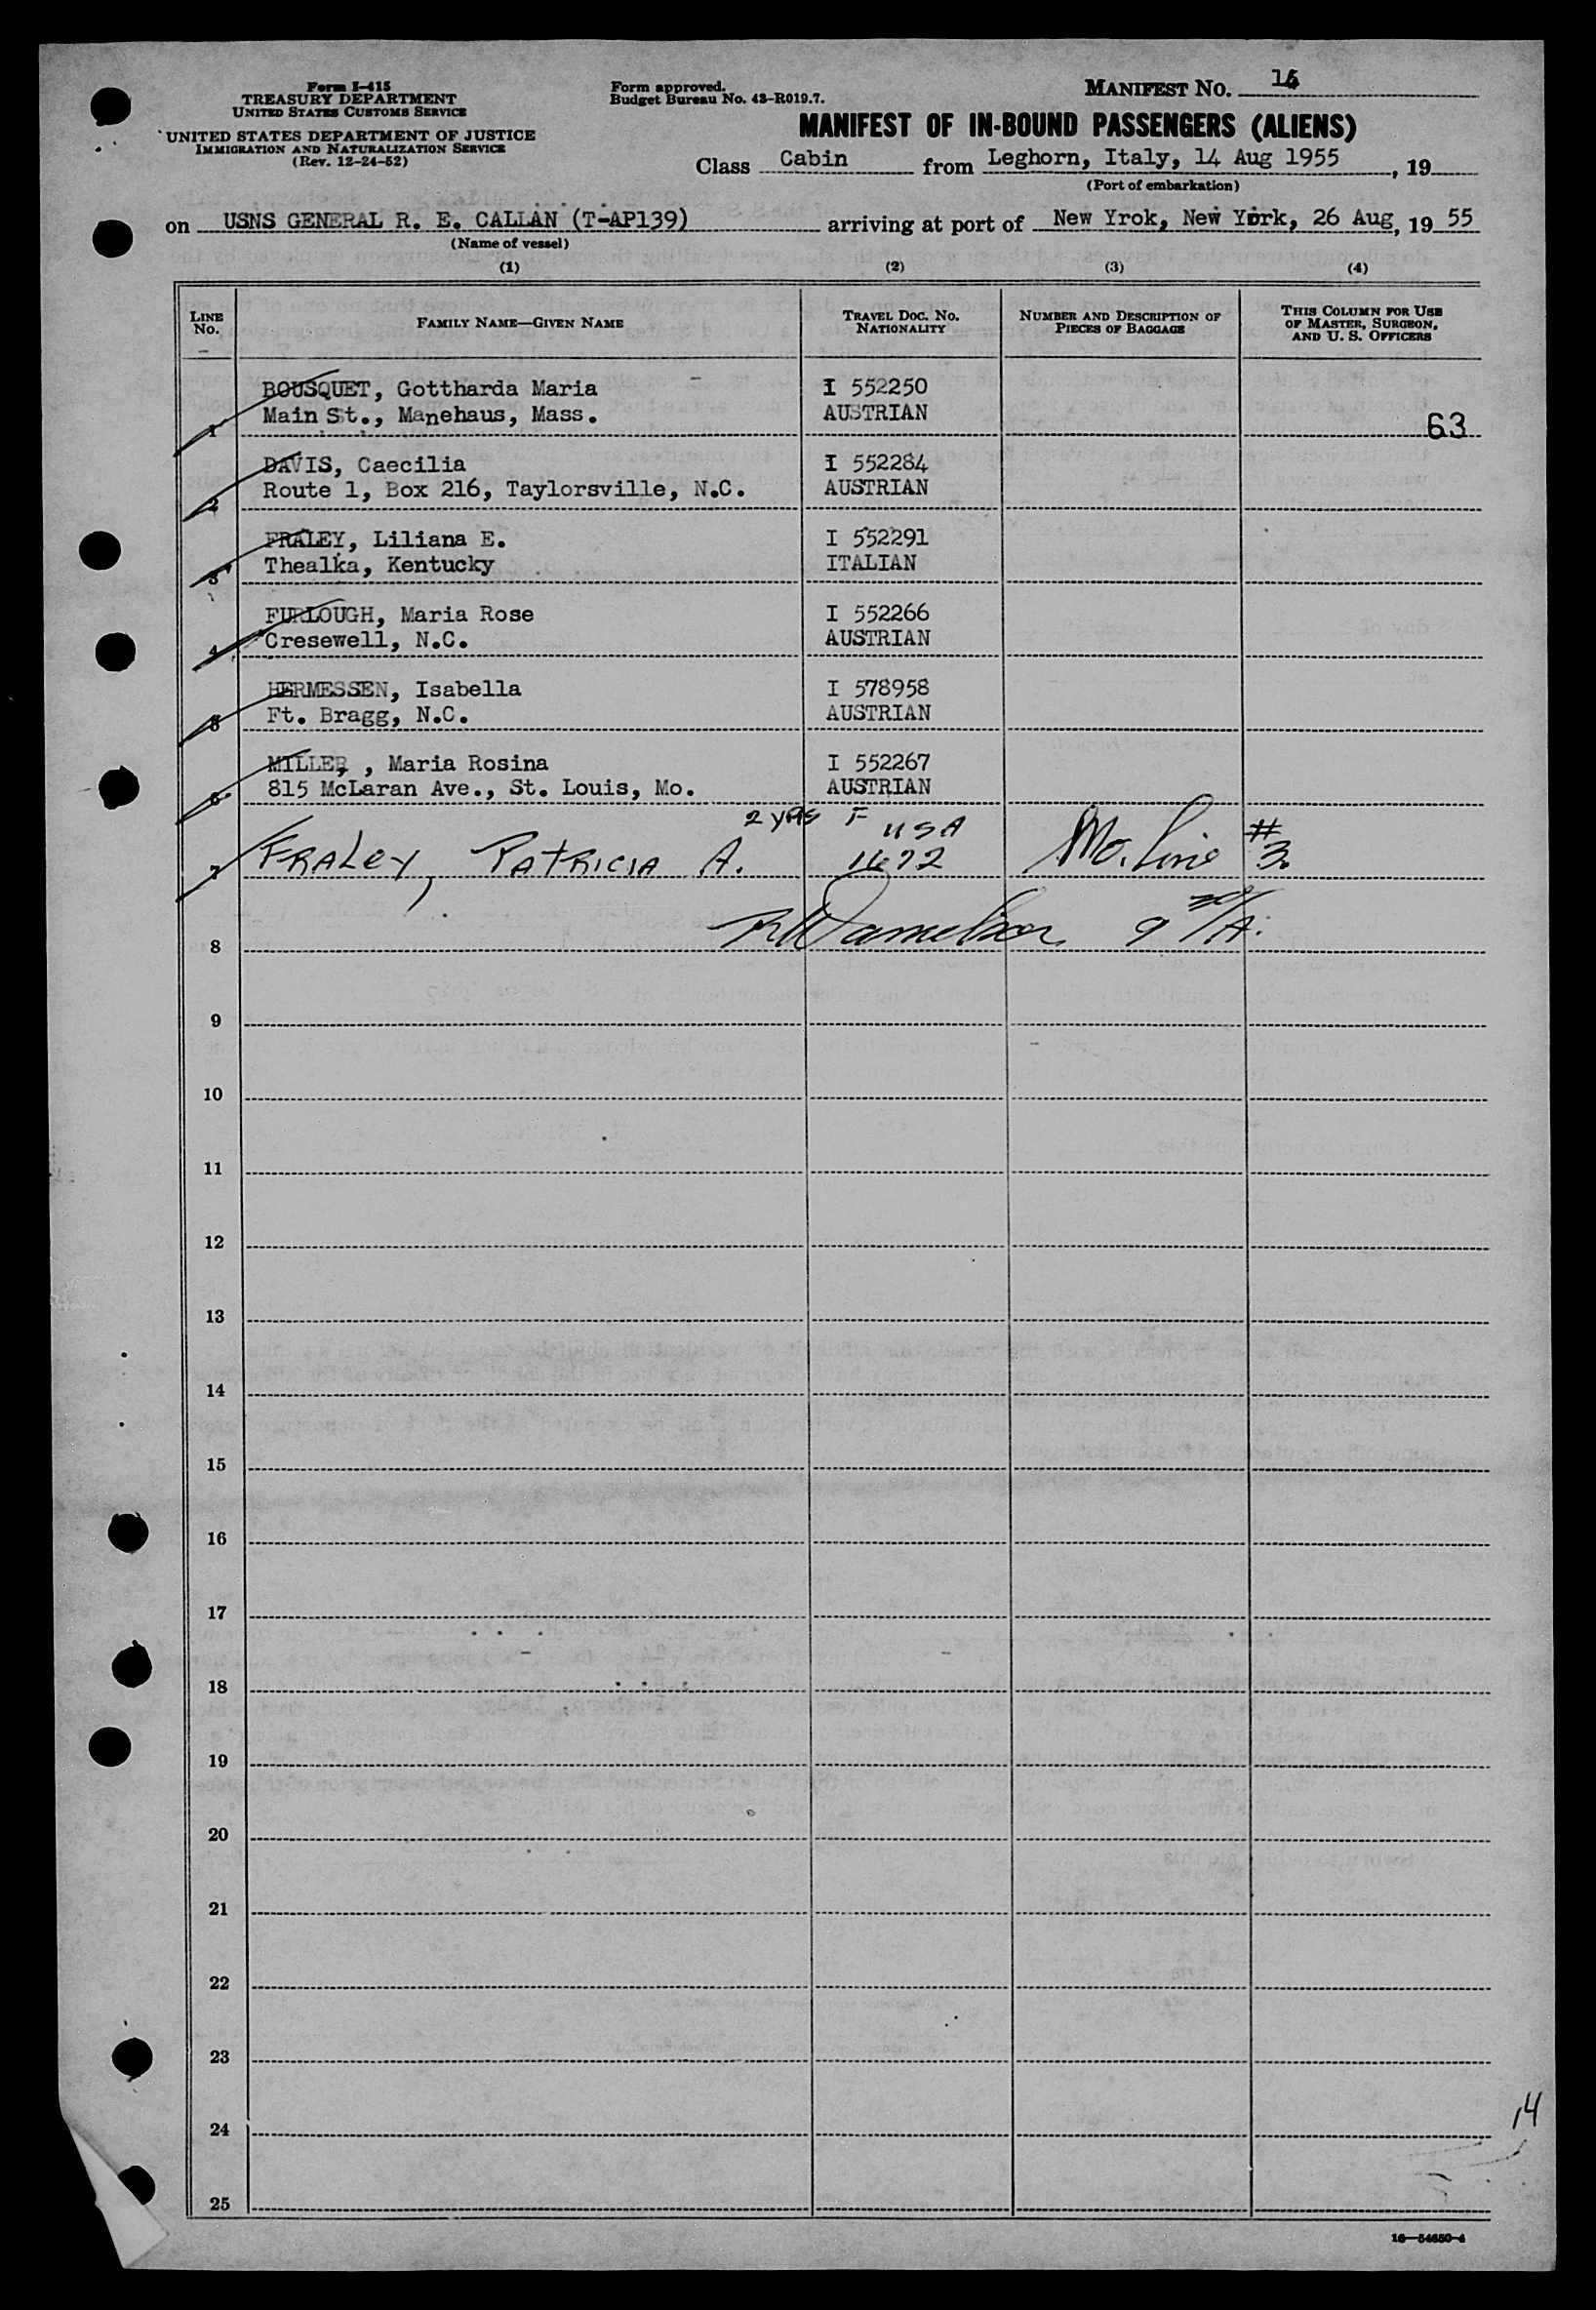 Form I-415
TREASURY DEPARTMENT
UNITED STATES CUSTOMS SERVICE
UNITED STATES DEPARTMENT OF JUSTICE
IMMIGRATION AND NATURALIZATION SERVICE
(Rev. 12-24-52)
Form approved.
Budget Bureau No. 43-R019.7.
MANIFEST NO.
MANIFEST OF IN-BOUND PASSENGERS (ALIENS)
Class Cabin from Leghorn, Italy, 14 Aug 1955, 19
(Port of embarkation)
on USNS GENERAL R. E. CALLAN (T-AP139) arriving at port of New Yrok, New York, 26 Aug, 19 55
(Name of vessel)
(1) (2) (3) (4)
LINE NO. FAMILY NAME—GIVEN NAME TRAVEL DOC. NO. NATIONALITY NUMBER AND DESCRIPTION OF PIECES OF BAGGAGE THIS COLUMN FOR USE OF MASTER, SURGEON, AND U. S. OFFICERS
BOUSQUET, Gottharda Maria I 552250
1 Main St., Manehaus, Mass. AUSTRIAN 63
DAVIS, Caecilia I 552284
2 Route 1, Box 216, Taylorsville, N.C. AUSTRIAN
FRALEY, Liliana E. I 552291
3 Thealka, Kentucky ITALIAN
FURLOUGH, Maria Rose I 552266
4 Cresewell, N.C. AUSTRIAN
HERMESSEN, Isabella I 578958
5 Ft. Bragg, N.C. AUSTRIAN
MILLER, , Maria Rosina I 552267
6 815 McLaran Ave., St. Louis, Mo. AUSTRIAN
2 yrs F USA
7 FRALEY, PATRICIA A. 1672 Mo. Line #3
8
9
10
11
12
13
14
15
16
17
18
19
20
21
22
23
24
14
25
16—54650-4